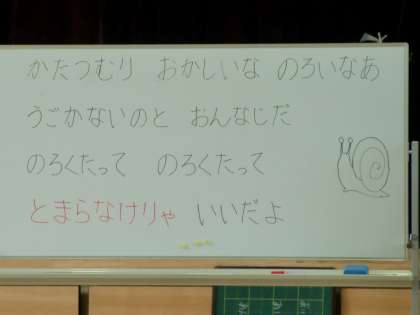 かたつむり おかしいな のろいなあ
うごかないのと おんなじだ
のろくたって のろくたって
とまらなけりゃ いいだよ